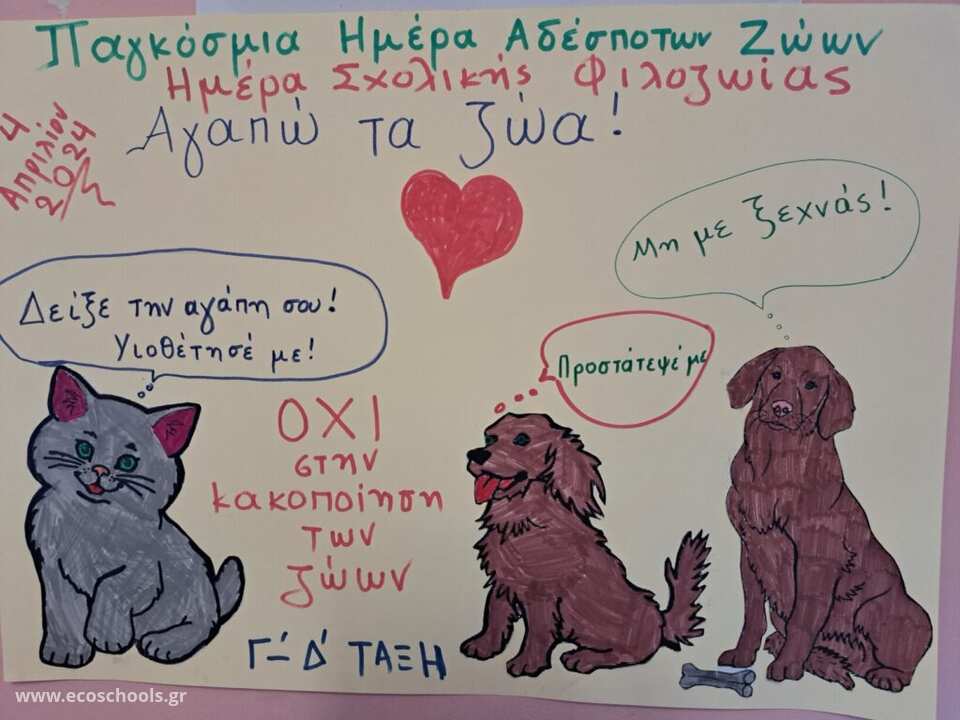 Παγκόσμια Ημέρα Αδέσποτων Ζώων
Ημέρα Σχολικής Φιλοζωίας
Αγαπώ τα ζώα!
4
Απριλίου
2024
Μη με ξεχνάς!
Δείξε την αγάπη σου!
Υιοθέτησέ με!
Προστάτεψέ με
ΟΧΙ
στην
κακοποίηση
των
ζώων
Γ΄- Δ΄ ΤΑΞΗ
www.ecoschools.gr